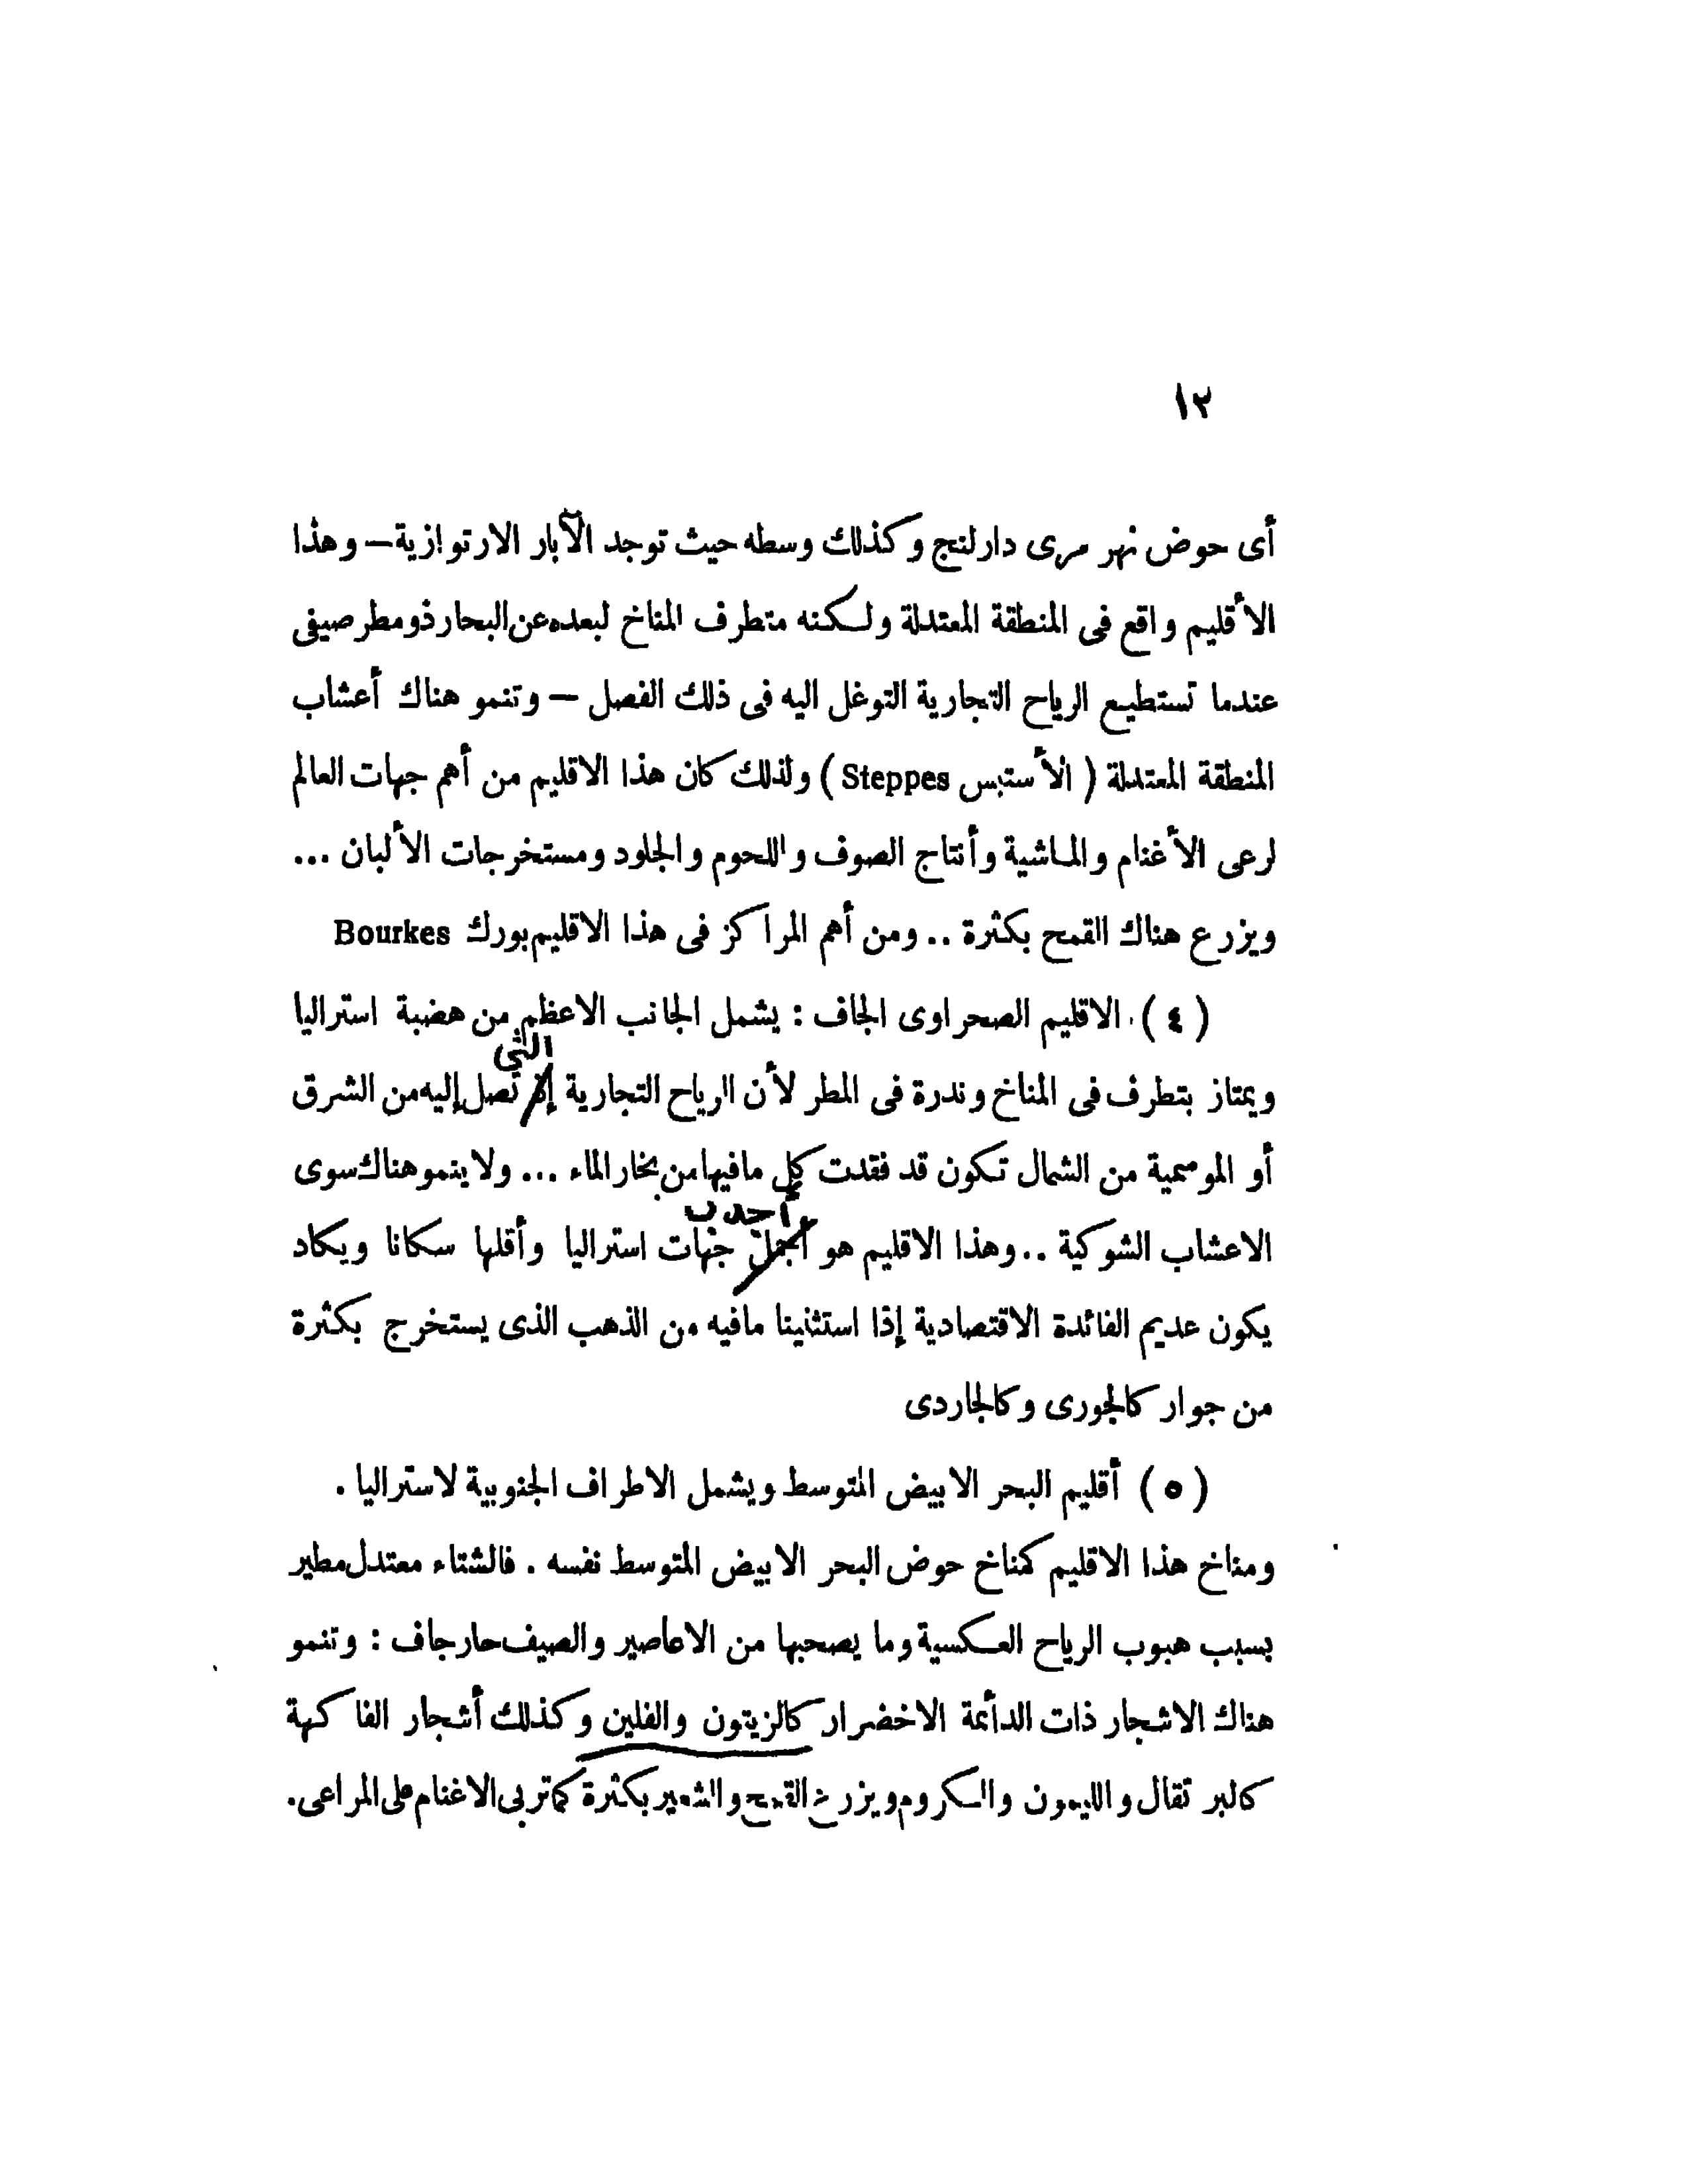 ١٢
أى حوض نهر مرى دارلنج وكذلك وسطه حيث توجد الآبار الارتوازية — وهذا
الأقليم واقع فى المنطقة المعتدلة ولكنه متطرف المناخ لبعده عن البحار ذو مطر صيفى
عندما تستطيع الرياح التجارية التوغل اليه فى ذلك الفصل — وتنمو هناك أعشاب
المنطقة المعتدلة ( الأستبس Steppes ) ولذلك كان هذا الاقليم من أهم جهات العالم
لرعى الأغنام والماشية وأنتاج الصوف واللحوم والجلود ومستخرجات الألبان ...
ويزرع هناك القمح بكثرة .. ومن أهم المراكز فى هذا الاقليم بورك Bourkes
( ٤ ) الاقليم الصحراوى الجاف : يشمل الجانب الاعظم من هضبة استراليا
التي
ويمتاز بتطرف فى المناخ وندرة فى المطر لأن الرياح التجارية إذ تصل إليه من الشرق
أو الموسمية من الشمال تكون قد فقدت كل مافيها من بخار الماء ... ولا ينمو هناك سوى
أجدب
الاعشاب الشوكية .. وهذا الاقليم هو أجمل جهات استراليا وأقلها سكانا ويكاد
يكون عديم الفائدة الاقتصادية إذا استثنينا مافيه من الذهب الذى يستخرج بكثرة
من جوار كالجورى وكالجاردى
( ٥ ) أقليم البحر الابيض المتوسط ويشمل الاطراف الجنوبية لاستراليا .
ومناخ هذا الاقليم كمناخ حوض البحر الابيض المتوسط نفسه . فالشتاء معتدل مطير
بسبب هبوب الرياح العكسية وما يصحبها من الاعاصير والصيف حار جاف : وتنمو
هناك الاشجار ذات الدأمة الاخضرار كالزيتون والفلين وكذلك أشجار الفاكهة
كالبرتقال والليمون والكروم ويزرع القمح والشعير بكثرة كما تربى الاغنام على المراعى.